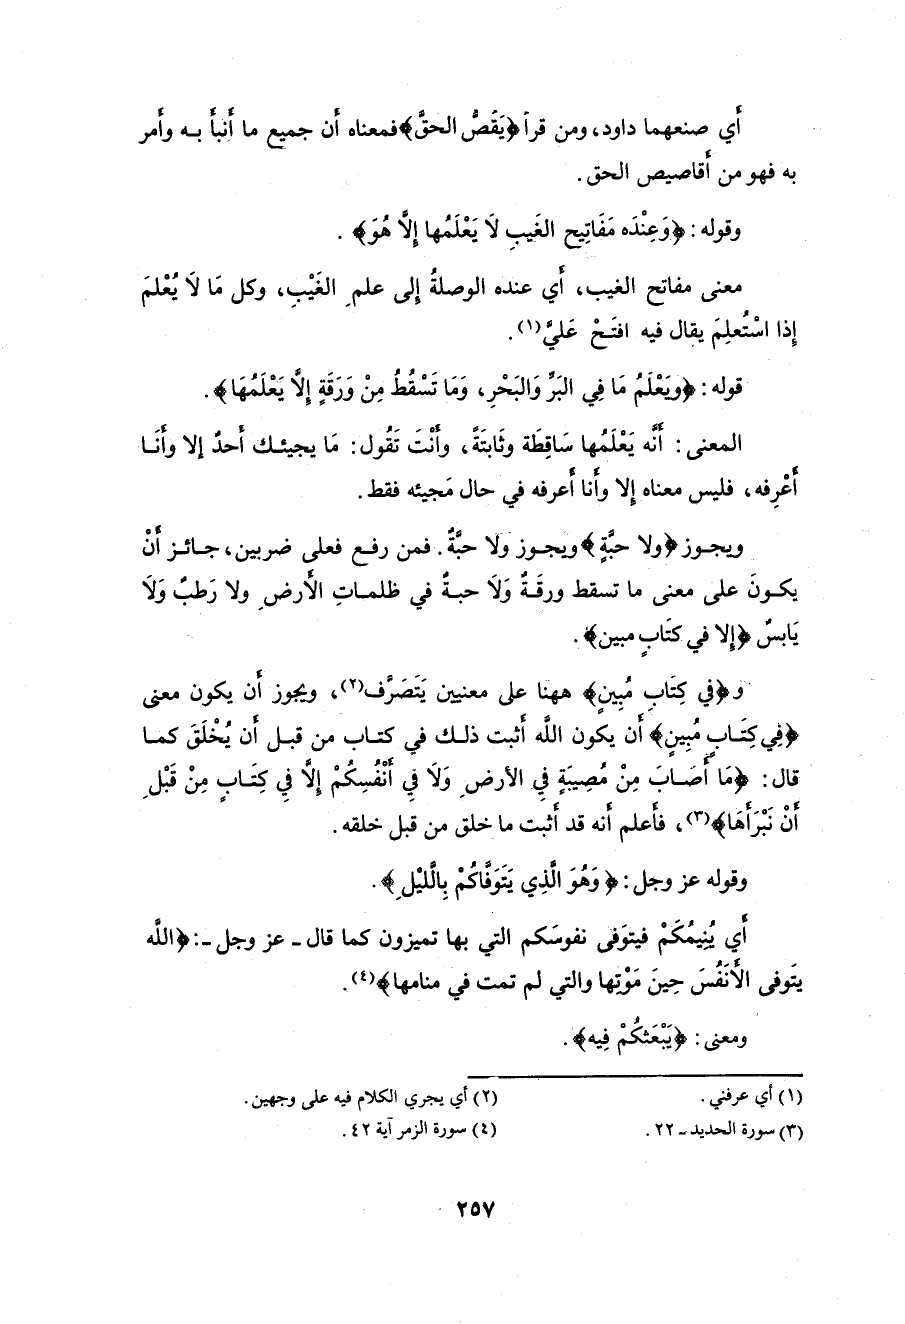 أَي صنعهما داود، ومن قرأ ﴿يَقُصُّ الحقَّ﴾فمعناه أَن جميع ما أَنبأَ بـه وأَمر
به فهو من أَقاصيص الحق.
وقوله: ﴿وَعِنْدَه مَفَاتِيح الغَيبِ لَا يَعْلَمُها إِلَّا هُوَ﴾.
معنى مفاتح الغيب، أَي عنده الوصلةُ إِلى علمِ الغَيْبِ، وكل مَا لَا يُعْلمَ
إِذا اسْتُعلِمَ يقال فيه افتَحْ عَليَّ(١).
قوله: ﴿ويَعْلَمُ مَا فِي البَرِّ وَالبَحْرِ، وَمَا تَسْقُطُ مِنْ وَرَقَةٍ إِلَّا يَعْلَمُهَا﴾.
المعنى: أَنَّه يَعْلَمُها سَاقِطَة وثَابتَةً، وأَنْتَ تَقُول: مَا يجيئـك أَحدٌ إلا وأَنَـا
أَعْرِفه، فليس معناه إِلا وأَنا أَعرفه في حال مَجيئه فقط.
ويجـوز ﴿ولا حبَّةٍ﴾ويجـوز ولا حبَّةٌ. فمن رفـع فعلى ضربين، جـائـز أَنْ
يكـونَ على معنى ما تسقط ورقَـةٌ وَلَا حبـةٌ في ظلمـاتِ الأَرضِ ولا رَطبٌ وَلَا
يَابسٌ ﴿إِلا في كتَابٍ مبين﴾.
و﴿في كِتَابٍ مُبِينٍ﴾ ههنا على معنيين يَتَصَرَّف(٢)، ويجوز أَن يكون معنى
﴿فِي كِتَـابٍ مُبِينٍ﴾ أَن يكون اللَّه أَثبت ذلـك في كتـاب من قبـل أَن يُخْلَقَ كمـا
قال: ﴿مَا أَصَـابَ مِنْ مُصِيبَةٍ فِي الأرضِ وَلَا فِي أَنْفُسِكُمْ إِلَّا فِي كِتَـابٍ مِنْ قَبْلِ
أَنْ نَبْرَأَهَا﴾(٣)، فأَعلم أَنه قد أَثبت ما خلق من قبل خلقه.
وقوله عز وجل: ﴿وَهُوَ الَّذِي يَتَوَفَّاكُمْ بِاللَّيْلِ﴾.
أَي يُنِيمُكَمْ فيتوَفى نفوسَكم التي بها تميزون كما قال ـ عز وجل ـ: ﴿اللَّه
يتَوفى الأَنفُسَ حِينَ مَوْتِها والتي لم تمت في منامها﴾(٤).
ومعنى: ﴿يَبْعَثكُمْ فِيه﴾.
(١) أي عرفني.
(٢) أي يجري الكلام فيه على وجهين.
(٣) سورة الحديد ـ ٢٢.
(٤) سورة الزمر آية ٤٢.
٢٥٧